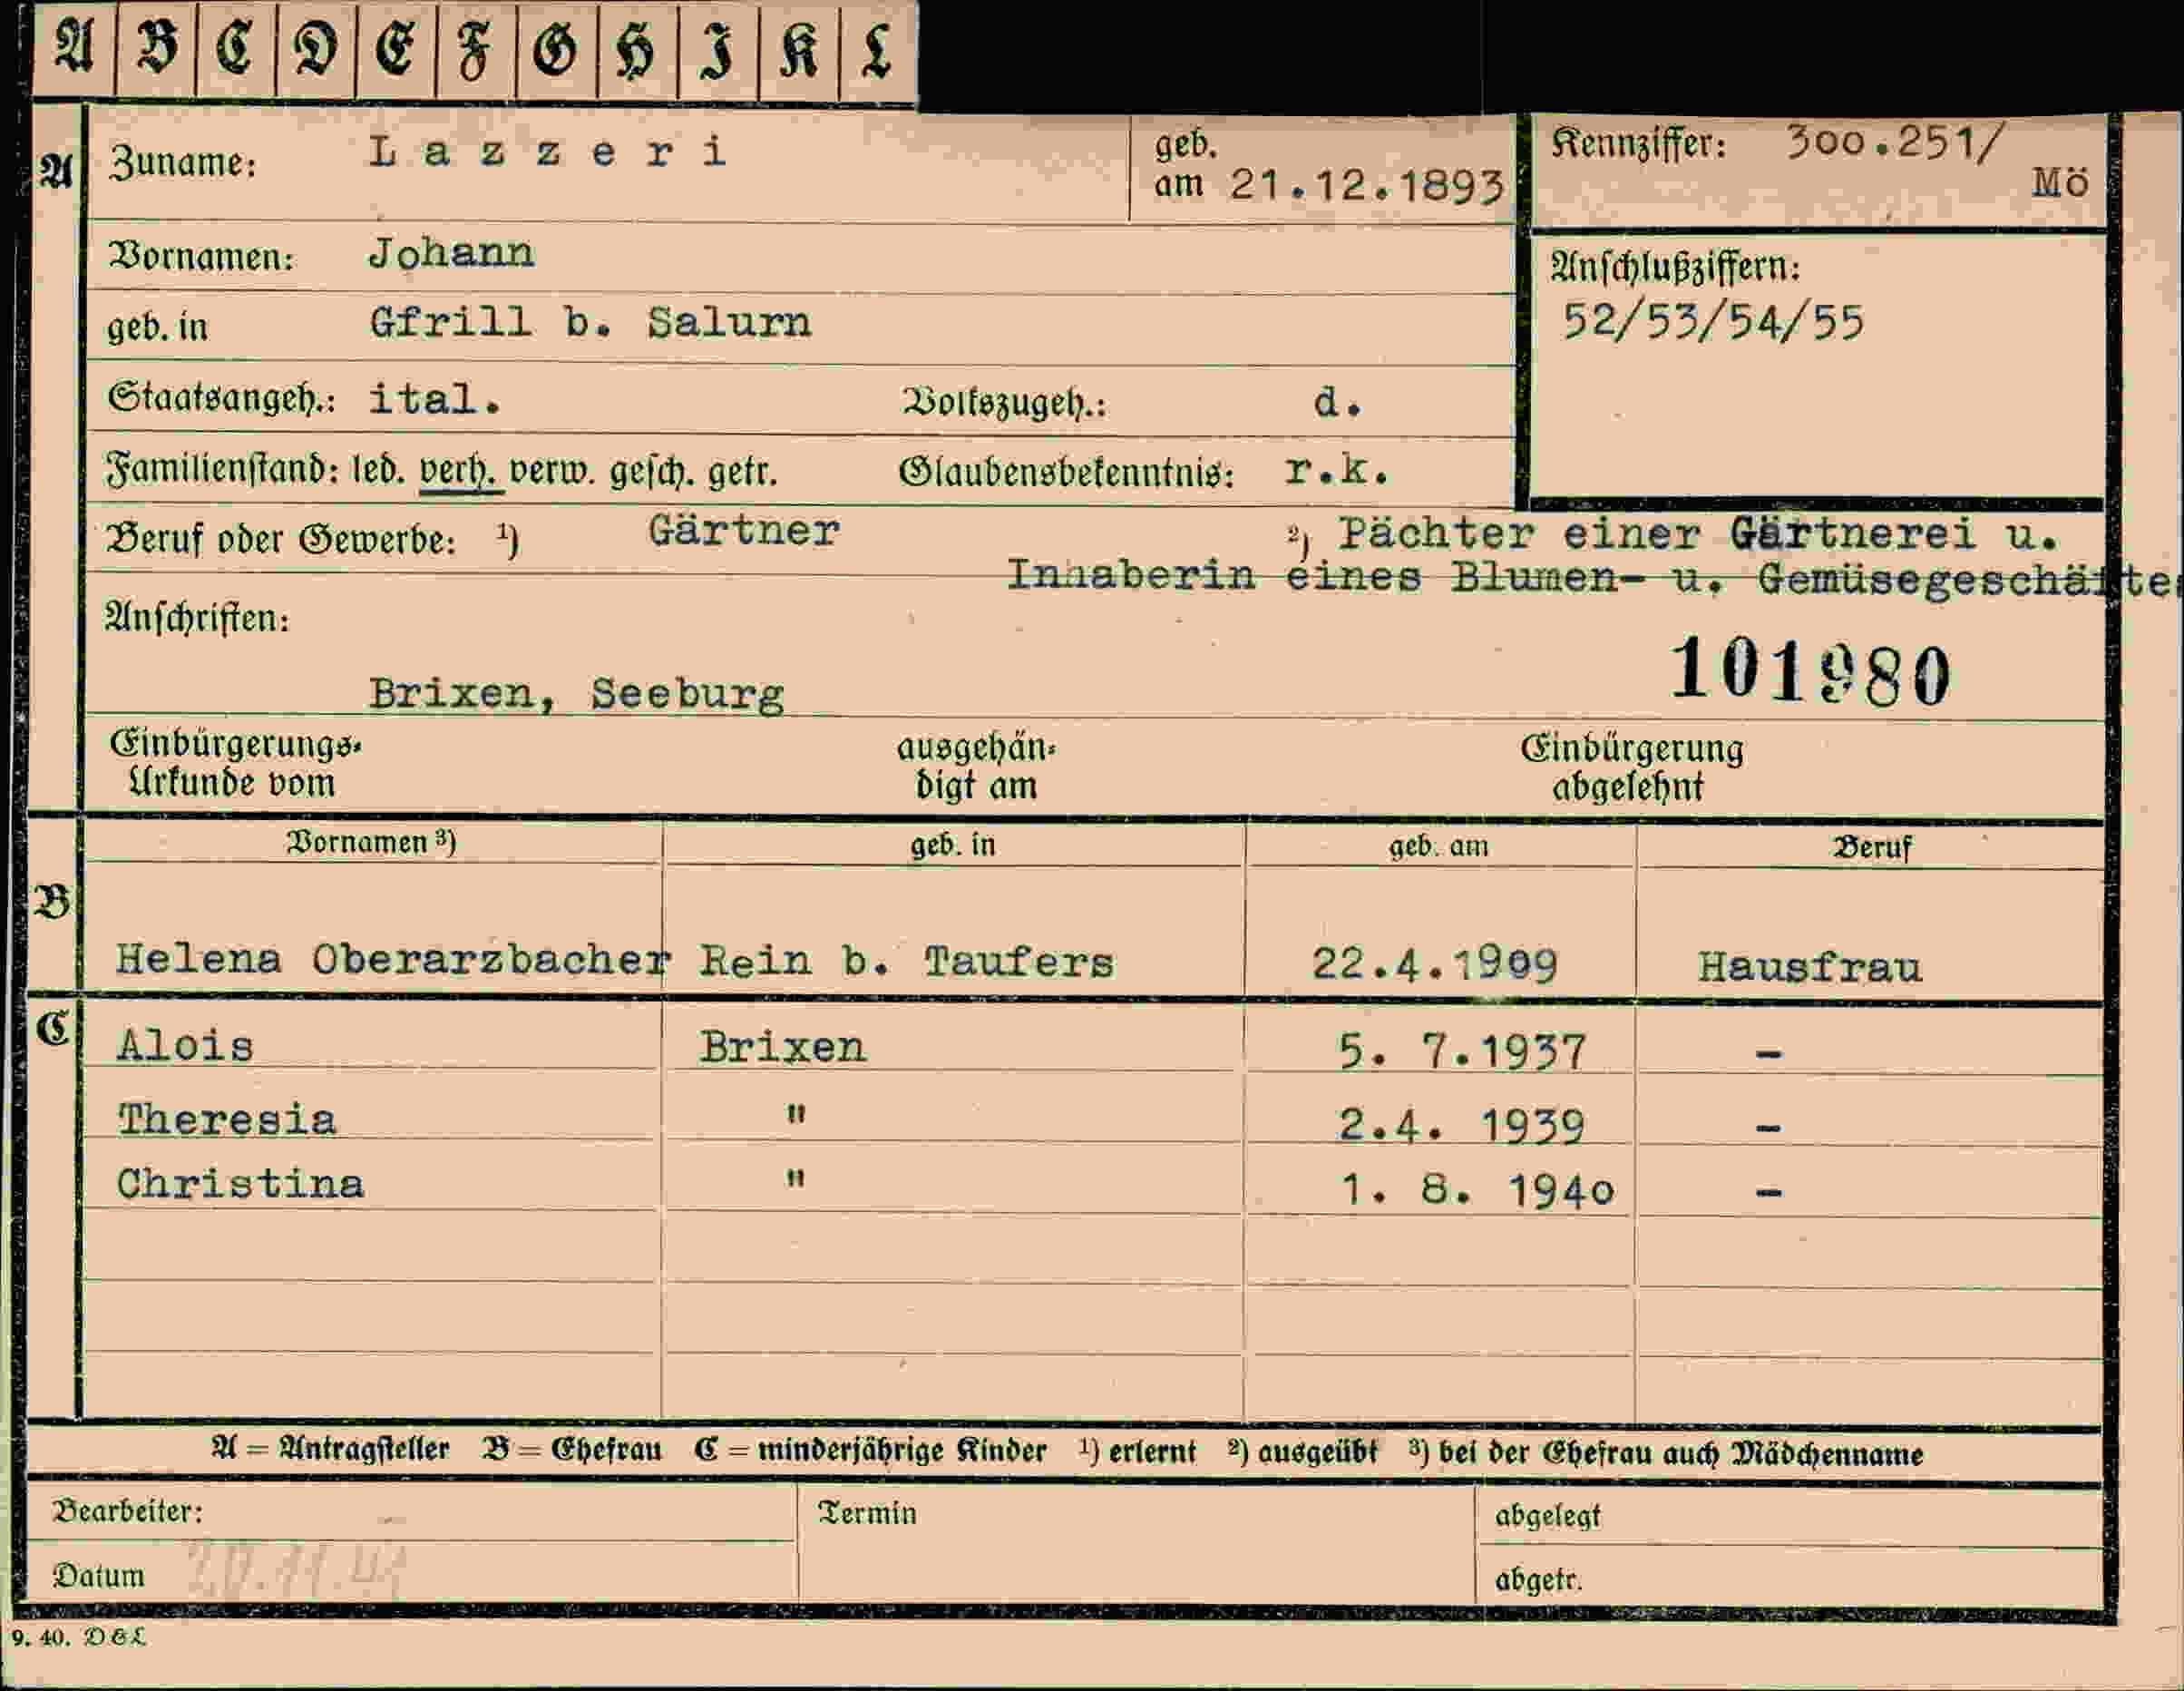 A B C D E F G H I K L
A Zuname: Lazzeri geb. am 21.12.1893 Kennziffer: 300.251/ Mö
Vornamen: Johann
Anschlußziffern:
geb. in Gfrill b. Salurn 52/53/54/55
Staatsangeh.: ital. Volkszugeh.: d.
Familienstand: led. verh. verw. gesch. getr. Glaubensbekenntnis: r.k.
Beruf oder Gewerbe: ¹) Gärtner ²) Pächter einer Gärtnerei u.
Inhaberin eines Blumen- u. Gemüsegeschäfte
Anschriften:
101980
Brixen, Seeburg
Einbürgerungs- ausgehän- Einbürgerung
Urkunde vom digt am abgelehnt
Vornamen ³) geb. in geb. am Beruf
B
Helena Oberarzbacher Rein b. Taufers 22.4.1909 Hausfrau
C Alois Brixen 5. 7.1937 -
Theresia " 2.4. 1939 -
Christina " 1. 8. 1940 -
A = Antragsteller B = Ehefrau C = minderjährige Kinder ¹) erlernt ²) ausgeübt ³) bei der Ehefrau auch Mädchenname
Bearbeiter: Termin abgelegt
Datum abgetr.
9. 40. D & L